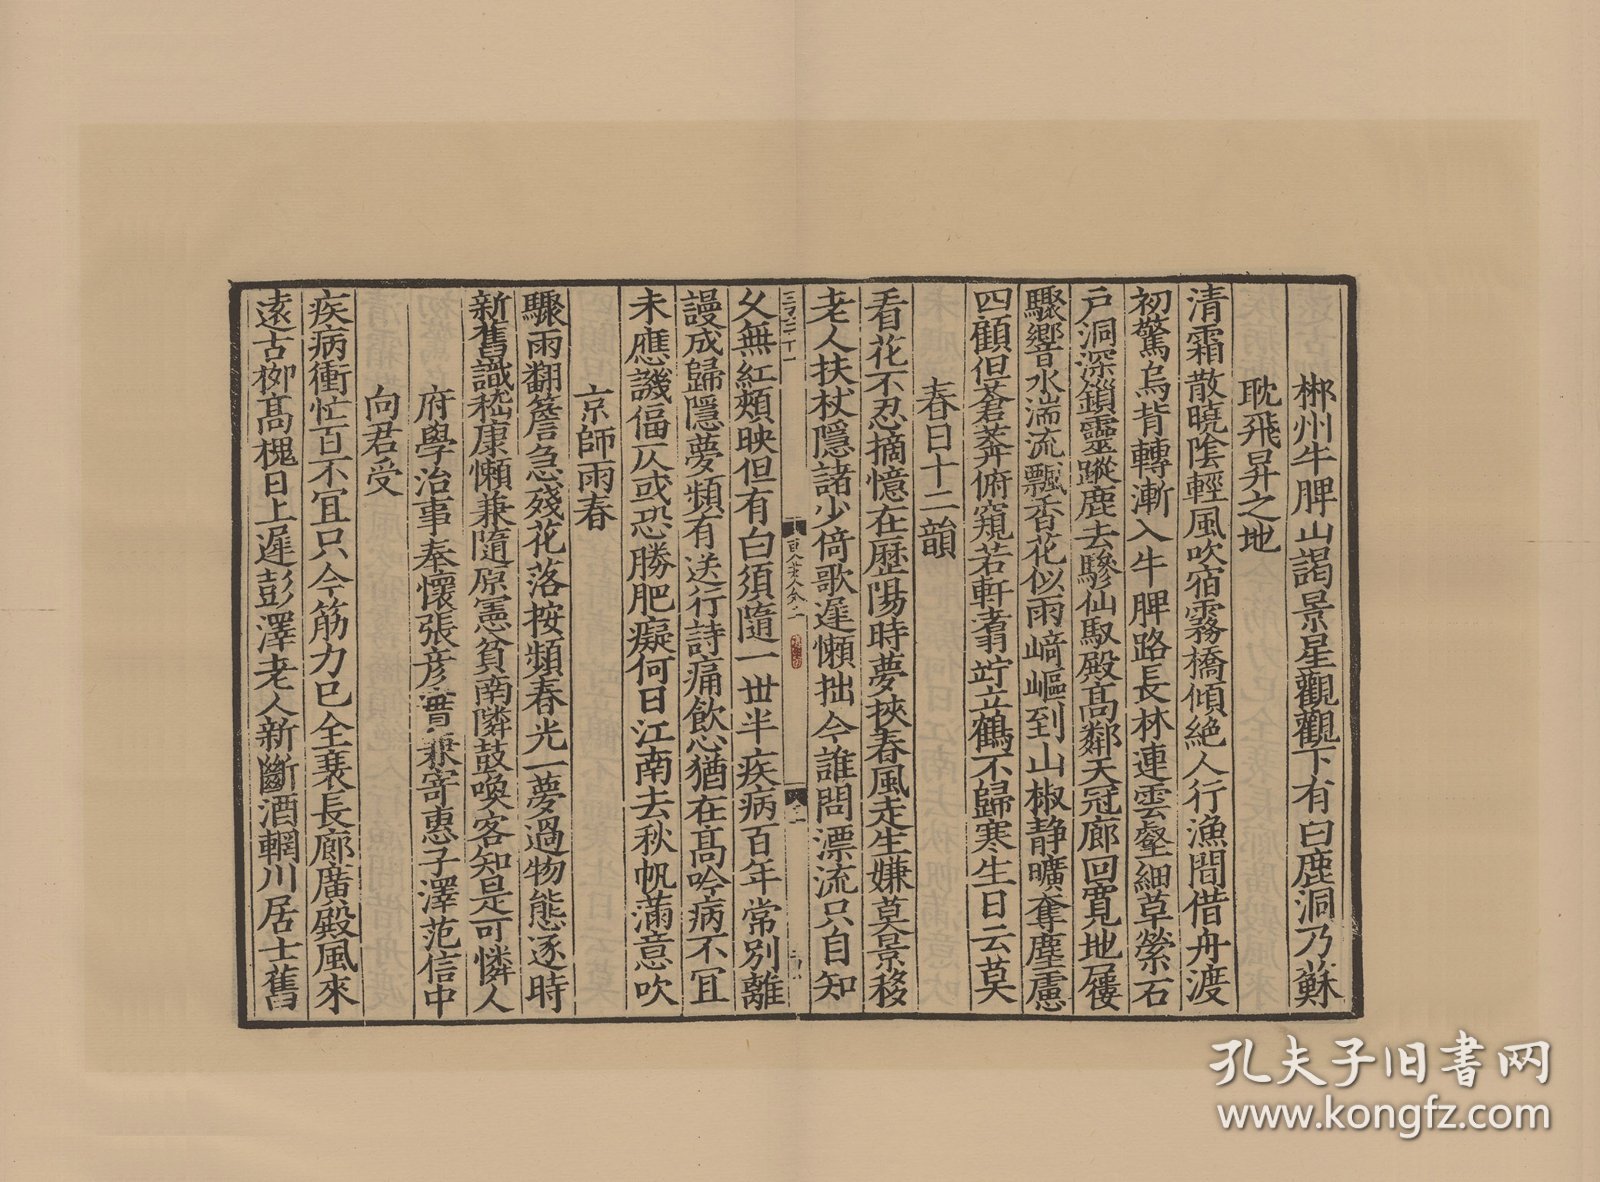 郴州牛脾山謁景星觀觀下有白鹿洞乃蘇
耽飛昇之地
清霜散曉陰輕風吹宿霧橋傾絶人行漁閒借舟渡
初驚烏背轉漸入牛脾路長林連雲壑細草縈石
戶洞深鎖靈蹤鹿去驂仙馭殿髙鄰天冠廊回寬地屨
驟響水湍流飄香花似雨﨑嶇到山椒静曠奪塵慮
四顧但蒼莽俯窺若軒翥竚立鶴不歸寒生日云莫
春日十二韻
看花不忍摘憶在歷陽時夢挾春風走生嫌莫景移
老人扶杖隱諸少倚歌遲懶拙今誰問漂流只自知
父無紅頰映但有白須隨一世半疾病百年常别離
謾成歸隱夢頻有送行詩痛飲心猶在髙吟病不冝
未應譏偪仄或恐勝肥癡何日江南去秋帆滿意吹
京師雨春
驟雨翻簷急殘花落按頻春光一夢過物態逐時
新舊識嵇康懶兼隨原憲貧南隣鼓喚客知是可憐人
府學治事奉懷張彦實兼寄惠子澤范信中
向君受
疾病衝忙百不冝只今筋力已全衰長廊廣殿風來
逺古栁髙槐日上遲彭澤老人新斷酒輞川居士舊
孔夫子旧書网
www.kongfz.com